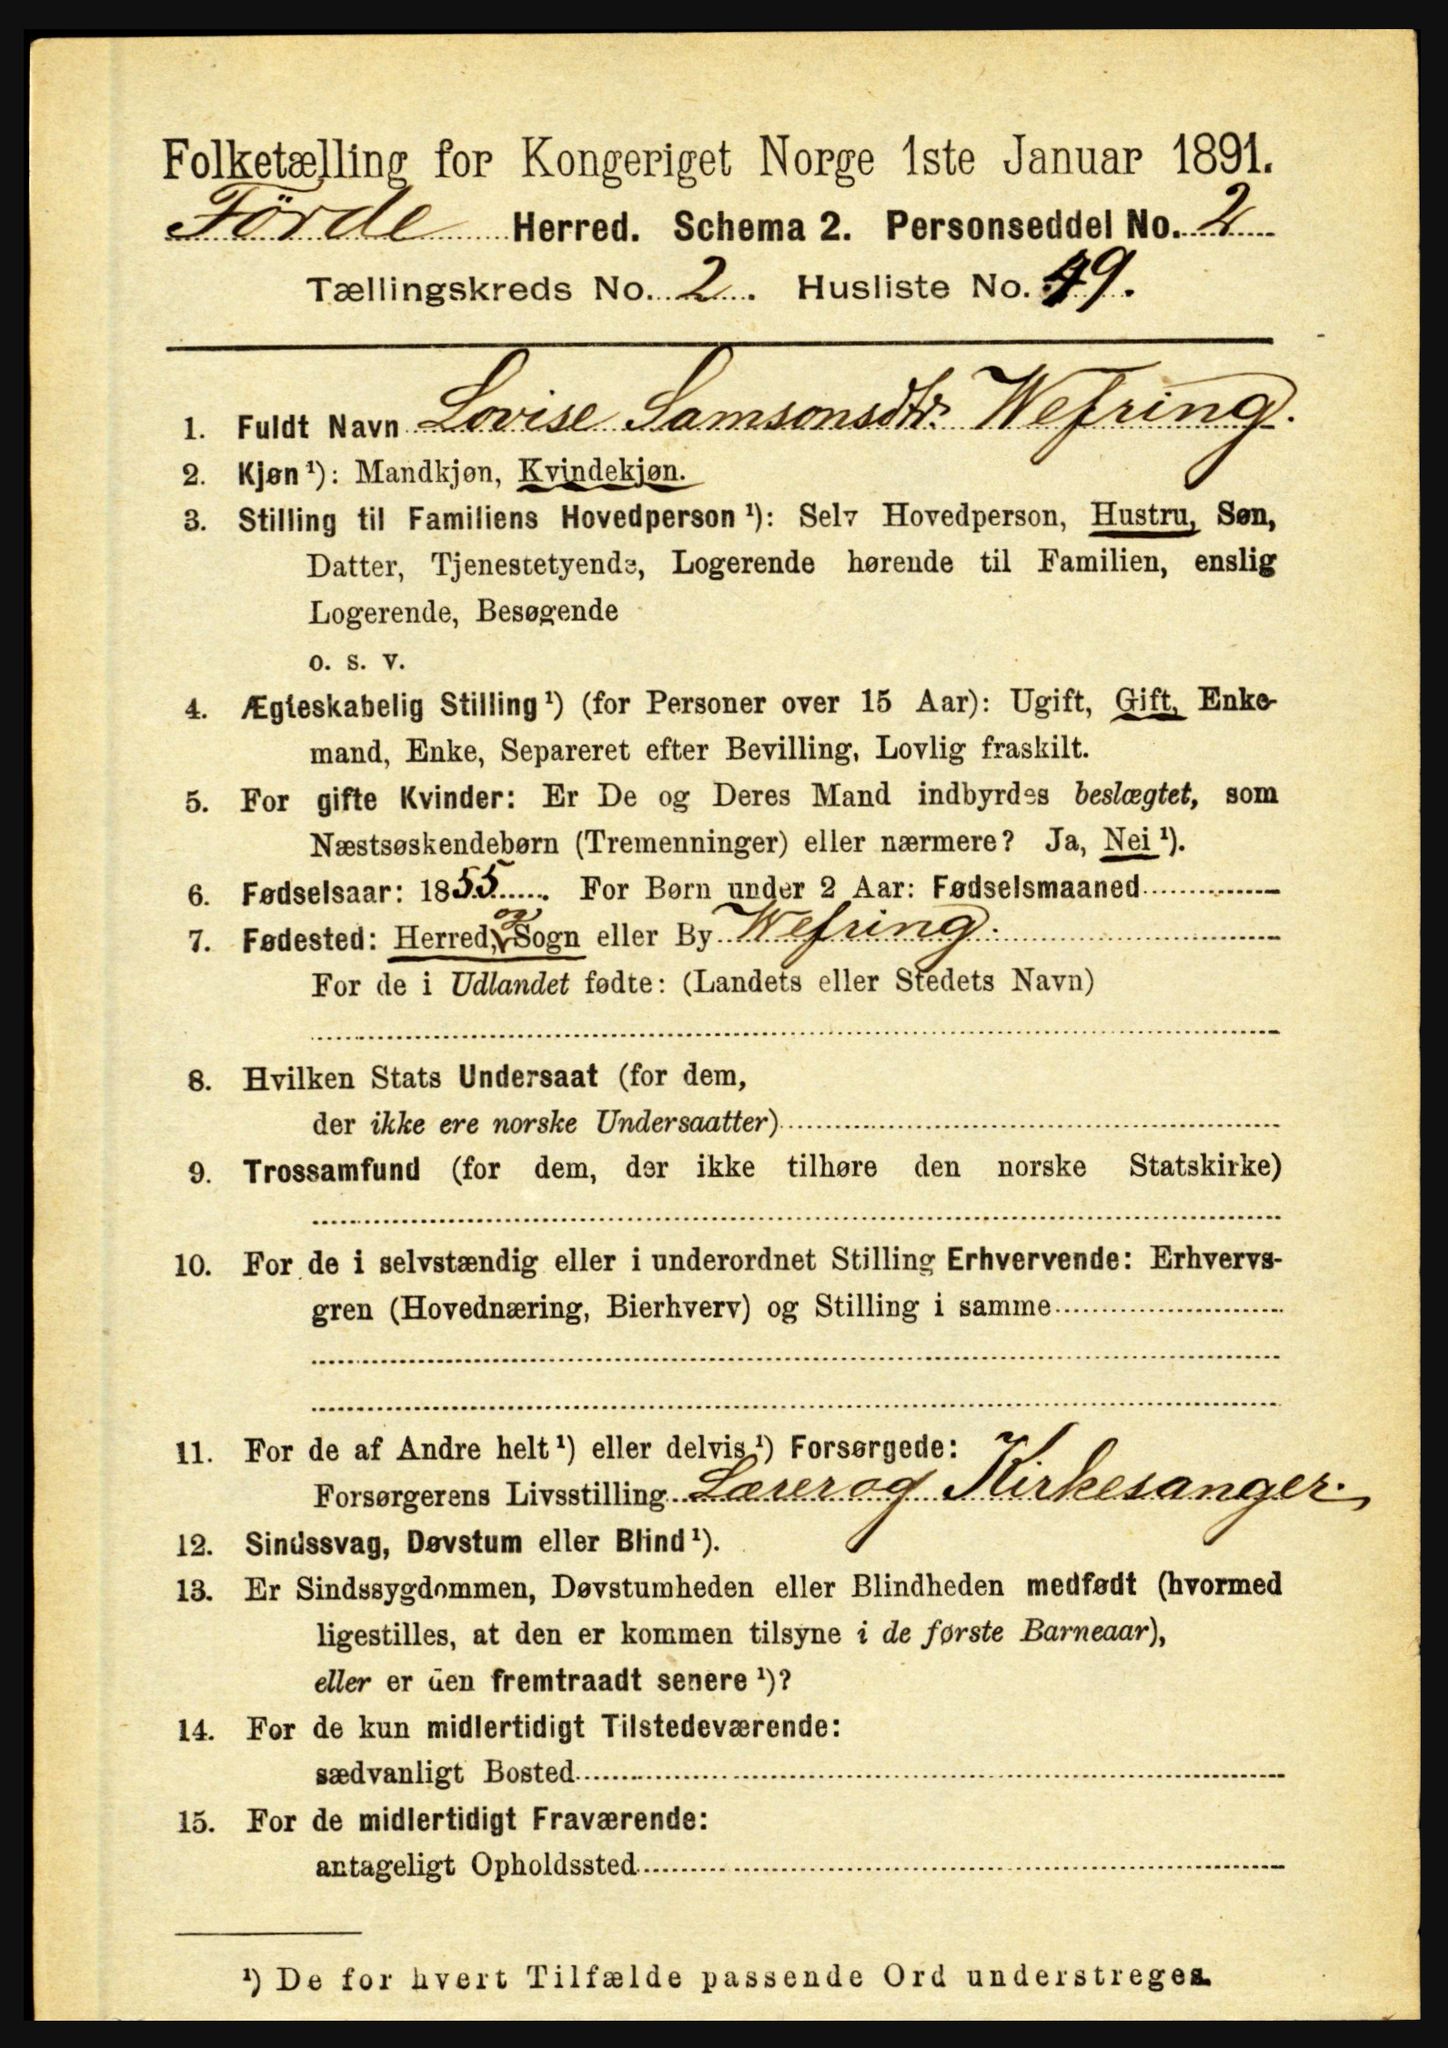 Folketælling for Kongeriget Norge 1ste Januar 1891.
Förde Herred. Schema 2. Personseddel No. 2
Tællingskreds No. 2. Husliste No. 49.
1. Fuldt Navn Lovise Samsonsdtr. Wefring.
2. Kjøn ¹): Mandkjøn, Kvindekjøn.
3. Stilling til Familiens Hovedperson ¹): Selv Hovedperson, Hustru, Søn,
Datter, Tjenestetyende, Logerende hørende til Familien, enslig
Logerende, Besøgende
o. s. v.
4. Ægteskabelig Stilling ¹) (for Personer over 15 Aar): Ugift, Gift, Enke-
mand, Enke, Separeret efter Bevilling, Lovlig fraskilt.
5. For gifte Kvinder: Er De og Deres Mand indbyrdes beslægtet, som
Næstsøskendebørn (Tremenninger) eller nærmere? Ja, Nei ¹).
6. Fødselsaar: 1855. For Børn under 2 Aar: Fødselsmaaned
7. Fødested: Herred, og Sogn eller By Wefring.
For de i Udlandet fødte: (Landets eller Stedets Navn)
8. Hvilken Stats Undersaat (for dem,
der ikke ere norske Undersaatter)
9. Trossamfund (for dem, der ikke tilhøre den norske Statskirke)
10. For de i selvstændig eller i underordnet Stilling Erhvervende: Erhvervs-
gren (Hovednæring, Bierhverv) og Stilling i samme
11. For de af Andre helt ¹) eller delvis ¹) Forsørgede:
Forsørgerens Livsstilling Lærer og Kirkesanger.
12. Sindssvag, Døvstum eller Blind ¹).
13. Er Sindssygdommen, Døvstumheden eller Blindheden medfødt (hvormed
ligestilles, at den er kommen tilsyne i de første Barneaar),
eller er den fremtraadt senere ¹)?
14. For de kun midlertidigt Tilstedeværende:
sædvanligt Bosted
15. For de midlertidigt Fraværende:
antageligt Opholdssted
¹) De for hvert Tilfælde passende Ord understreges.